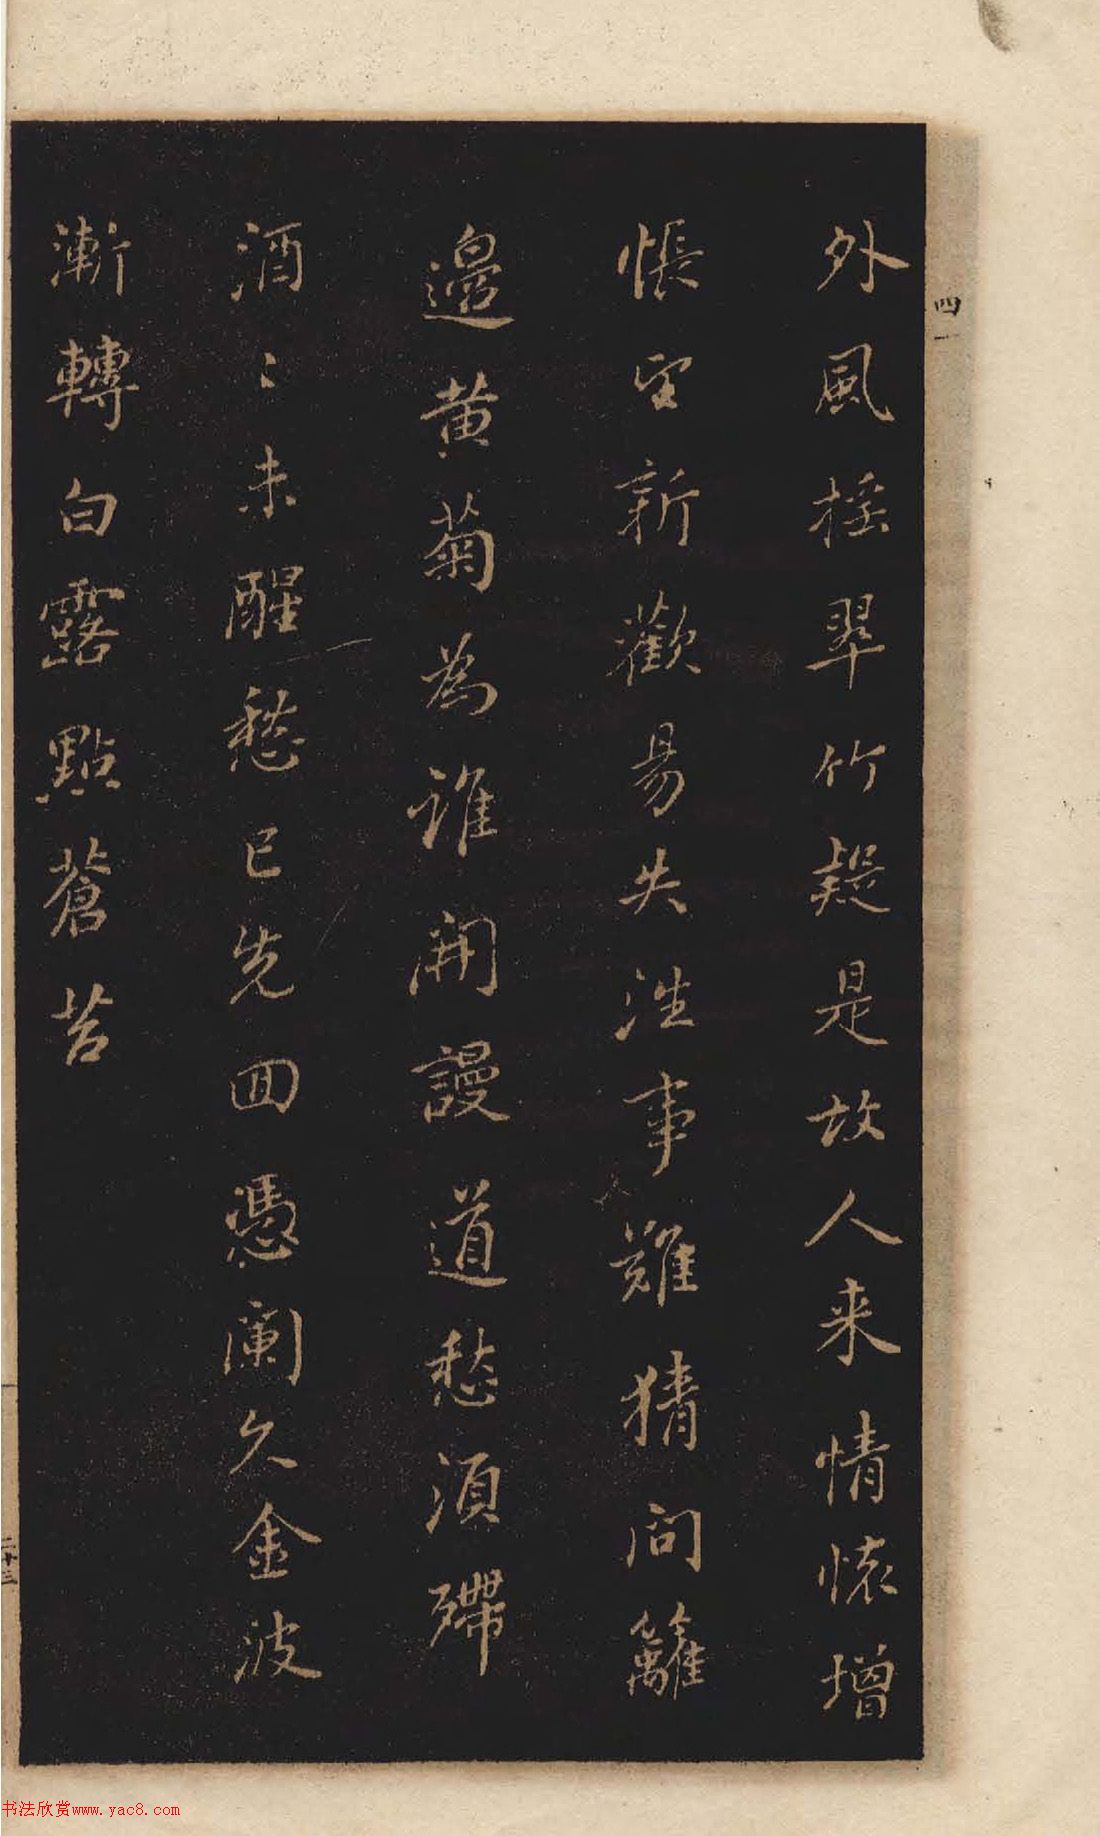 四一
外風揺翠竹疑是故人来情懐增
悵望新歡易失徃事難猜問籬
邊黄菊為誰開謾道愁須殢
酒〻未醒愁已先回憑闌久金波
漸轉白露點蒼苔
二十三
书法欣赏www.yac8.com